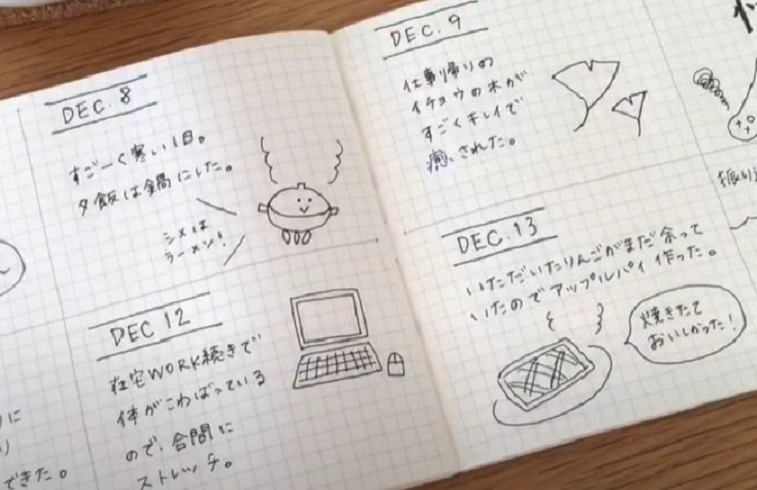 DEC. 8
すごーく寒い1日。
夕飯は鍋にした。
シメは
ラーメン!
DEC. 9
仕事帰りの
イチョウの木が
すごくキレイで
癒された。
DEC 12
在宅WORK続きで
体がこわばっている
ので、合間に
ストレッチ。
DEC. 13
いただいたりんごがまだ余って
いたのでアップルパイ作った。
焼きたて
おいしかった!
に
できた。